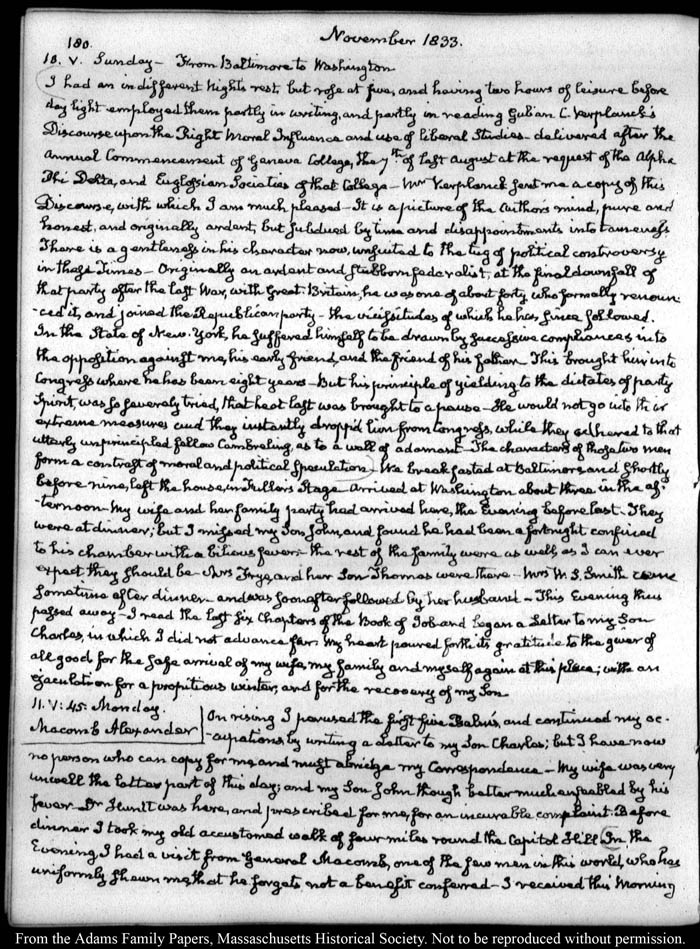 180.
November 1833.
10. V. Sunday - From Baltimore to Washington
I had an indifferent Nights rest, but rose at five, and having two hours of leisure before
day light employed them partly in writing, and partly in reading Gulian C. Verplanck's
Discourse upon the Right Moral Influence and use of Liberal Studies - delivered after the
annual Commencement of Geneva College, the 7th of last August at the request of the Alpha
Phi Delta, and Euglossian Societies of that College - Mr Verplanck sent me a copy of this
Discourse, with which I am much pleased - It is a picture of the Author's mind, pure and
honest, and originally ardent, but subdued by time and disappointments into tameness
There is a gentleness in his character now, unsuited to the tug of political controversy
in these Times - Originally an ardent and stubborn federalist, at the final downfall of
that party after the last War, with Great-Britain, he was one of about forty who formally renoun-
-ced it, and joined the Republican party - the vicissitudes of which he has since followed.
In the State of New-York, he suffered himself to be drawn by successive compliances into
the opposition against me, his early friend, and the friend of his father. This brought him into
Congress where he has been eight years - But his principle of yielding to the dictates of party
Spirit, was so severely tried, that he at last was brought to a pause - He would not go into their
extreme measures and they instantly dropp'd him from Congress, while they adhered to that
utterly unprincipled fellow Cambreling, as to a wall of adamant - The characters of those two men
form a contrast of moral and political speculation - We breakfasted at Baltimore and shortly
before nine, left the house, in Fuller's Stage - arrived at Washington about three in the af-
-ternoon - My wife and her family party had arrived here, the Evening before last - They
were at dinner; but I missed my Son John, and found he had been a fortnight confined
to his chamber with a bilious fever - the rest of the family were as well, as I can ever
expect they should be - Mrs Frye, and her Son Thomas were there - Mrs W. S. Smith came
sometime after dinner - and was soon after followed by her husband - This Evening thus
passed away - I read the last six Chapters of the Book of Job and began a Letter to my Son
Charles, in which I did not advance far. My heart poured forth its gratitude to the giver of
all good for the safe arrival of my wife, my family and myself again at this place; with an
ejaculation for a propitious winter, and for the recovery of my Son
11. V: 45. Monday.
Macomb Alexander
On rising I perused the first five Psalms, and continued my oc-
-cupations, by writing a Letter to my Son Charles; but I have now
no person who can copy for me, and must abridge my Correspondence - My wife was very
unwell the latter part of this day; and my Son John though better much enfeebled by his
fever - Dr Huntt was here, and prescribed for me, for an incurable complaint. Before
dinner I took my old accustomed walk of four miles round the Capitol Hill In the
Evening I had a visit from General Macomb, one of the few men in this world, who has
uniformly shewn me, that he forgets not a benefit conferred - I received this Morning
From the Adams Family Papers, Massachusetts Historical Society. Not to be reproduced without permission